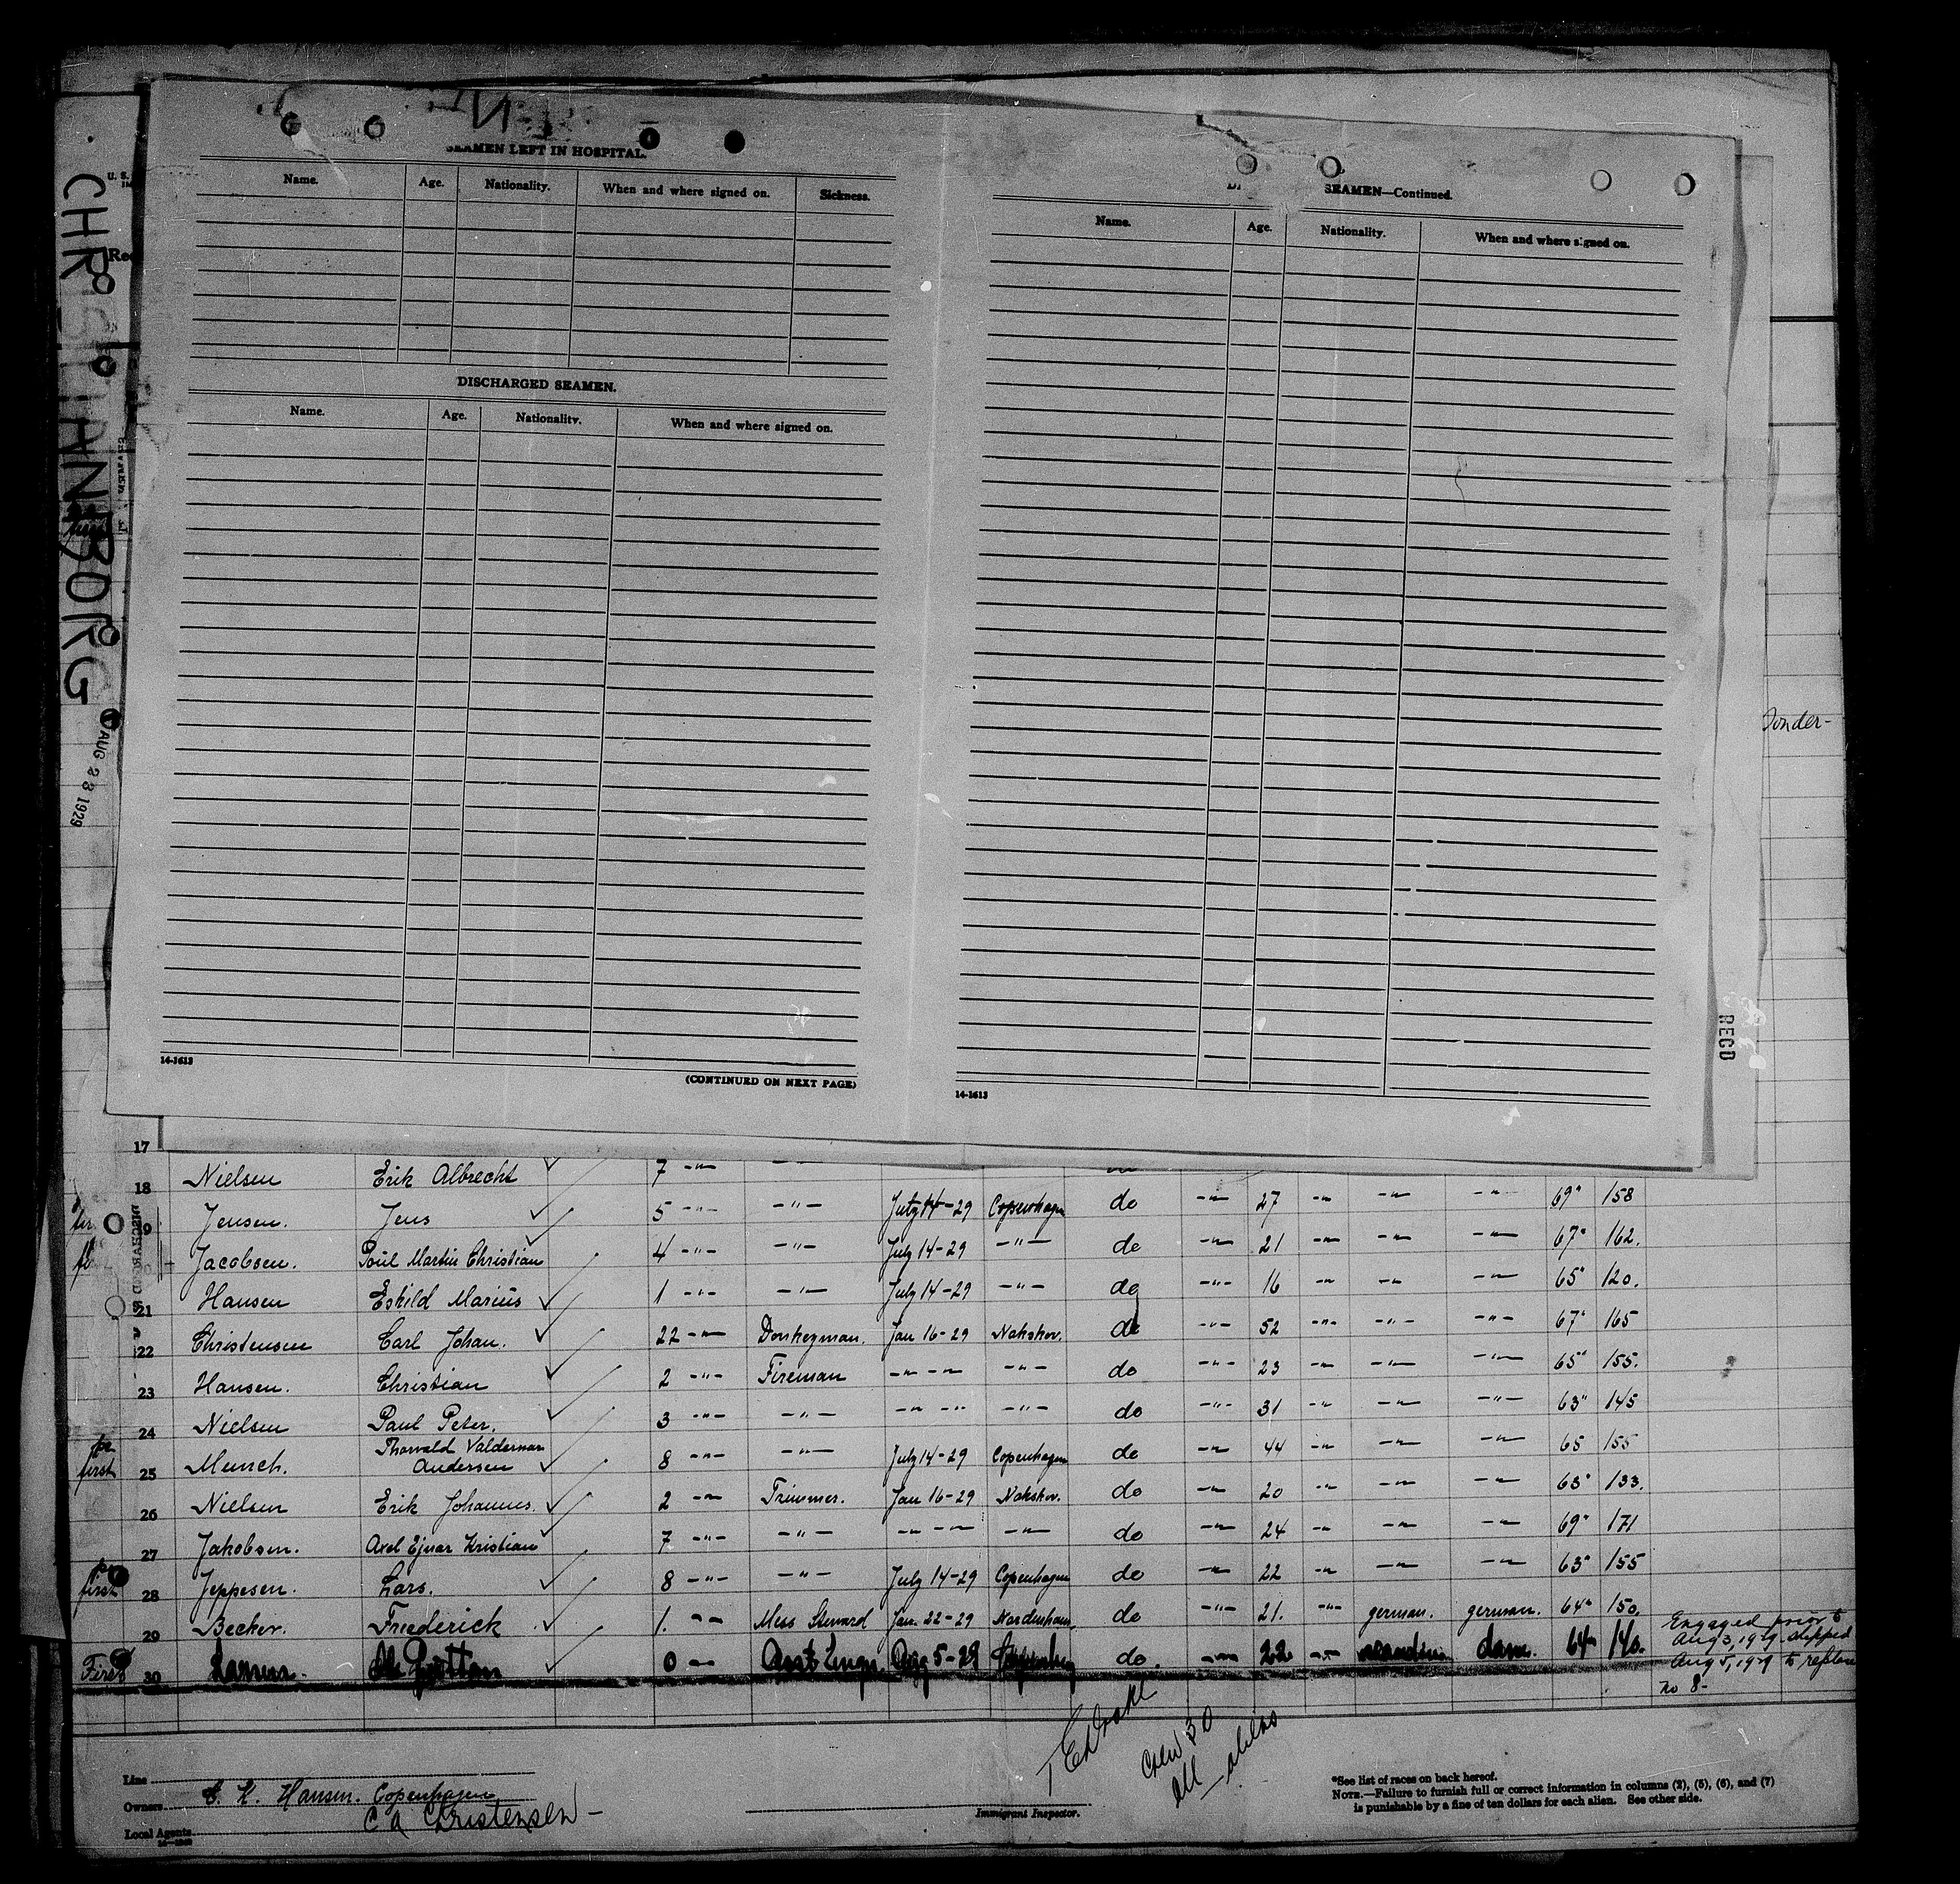 CHRISTIANBORG
AUG 23 1929
U. S.
SEAMEN LEFT IN HOSPITAL.
Name. Age. Nationality. When and where signed on. Sickness.
DISCHARGED SEAMEN.
Name. Age. Nationality. When and where signed on.
14-1613
(CONTINUED ON NEXT PAGE)
SEAMEN—Continued.
Name. Age. Nationality. When and where signed on.
14-1613
RECD
17
18 Nielsen Erik Albrecht ✓ 7 -"-
19 Jensen. Jens ✓ 5 -"- -"- July 14-29 Copenhagen do -"- 27 -"- -"- -"- 69" 158
20 Jacobsen. Poul Martin Christian ✓ 4 -"- -"- July 14-29 -"- do -"- 21 -"- -"- -"- 67" 162.
21 Hansen Eskild Marius ✓ 1 -"- -"- July 14-29 -"- do -"- 16 -"- -"- -"- 65" 120.
22 Christensen Carl Johan. ✓ 22 -"- Donkeyman. Jan 16-29 Nakskov. do -"- 52 -"- -"- -"- 67" 165
23 Hansen. Christian ✓ 2 -"- Fireman -"- -"- -"- do -"- 23 -"- -"- -"- 65" 155.
24 Nielsen Paul Peter. ✓ 3 -"- -"- -"- -"- -"- do -"- 31 -"- -"- -"- 63" 145
first 25 Munch. Thorvald Valdemar Andersen ✓ 8 -"- -"- July 14-29 Copenhagen do -"- 44 -"- -"- -"- 65 155
26 Nielsen Erik Johannes. ✓ 2 -"- Trimmer. Jan 16-29 Nakskov. do -"- 20 -"- -"- -"- 63" 133.
27 Jakobsen. Axel Ejnar Kristian ✓ 7 -"- -"- -"- -"- -"- do -"- 24 -"- -"- -"- 69" 171
first 28 Jeppesen. Lars. ✓ 8 -"- -"- July 14-29 Copenhagen do -"- 22 -"- -"- -"- 63" 155
29 Becker. Friederick ✓ 1. -"- Mess Steward Jan. 22-29 Nordenham. do -"- 21. -"- german. german. 64" 150.
First 30 ✓ 0 -"- Aug 5-29 do. -"- 22 -"- dane. 64" 140.
Engaged prior to
Aug 3, 1929 shipped
Aug 5, 1929 to replace
no 8-
Crew 30
All
Line
Owners C. K. Hansen. Copenhagen
C A Christensen
Local Agents
Immigrant Inspector.
*See list of races on back hereof.
NOTE.—Failure to furnish full or correct information in columns (2), (5), (6), and (7)
is punishable by a fine of ten dollars for each alien. See other side.